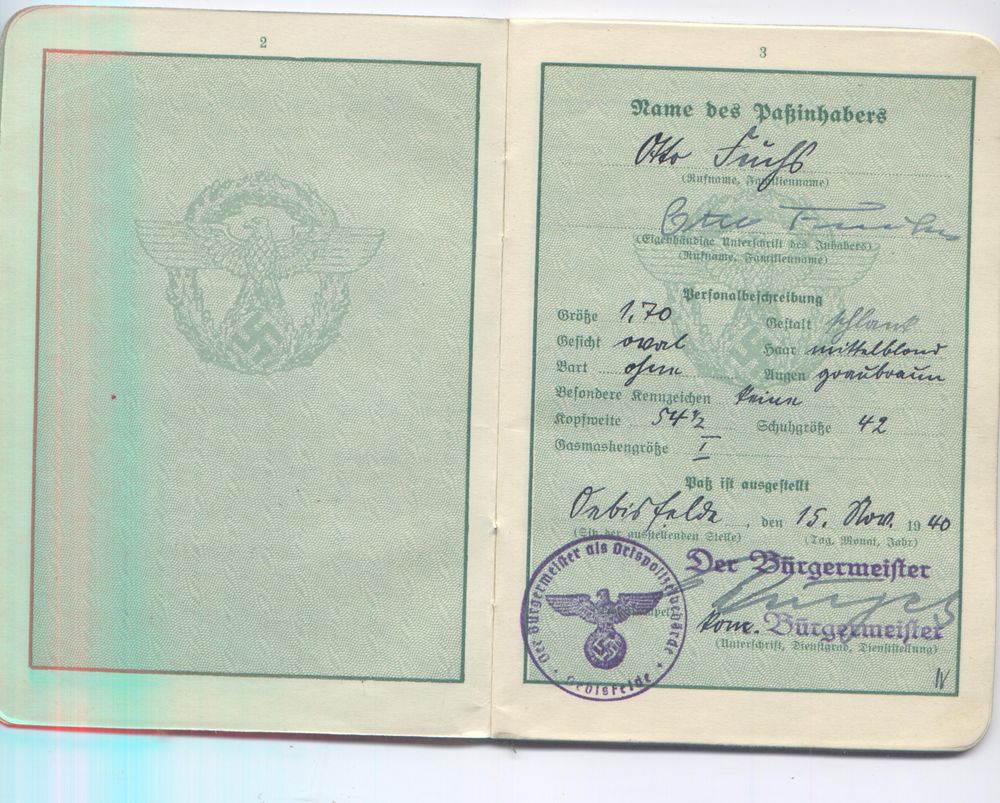 2
3
Name des Paßinhabers
Otto Fuchs
(Rufname, Familienname)
Otto Fuchs
(Eigenhändige Unterschrift des Inhabers)
(Rufname, Familienname)
Personalbeschreibung
Größe 1,70 Gestalt schlank
Gesicht oval Haar mittelblond
Bart ohne Augen graubraun
Besondere Kennzeichen keine
Kopfweite 54 1/2 Schuhgröße 42
Gasmaskengröße I
Paß ist ausgestellt
Oebisfelde, den 15. Nov. 1940
(Sitz der ausstellenden Stelle) (Tag, Monat, Jahr)
Der Bürgermeister als Ortspolizeibehörde
Oebisfelde
Der Bürgermeister
kom. Bürgermeister
(Unterschrift, Dienstgrad, Dienststellung)